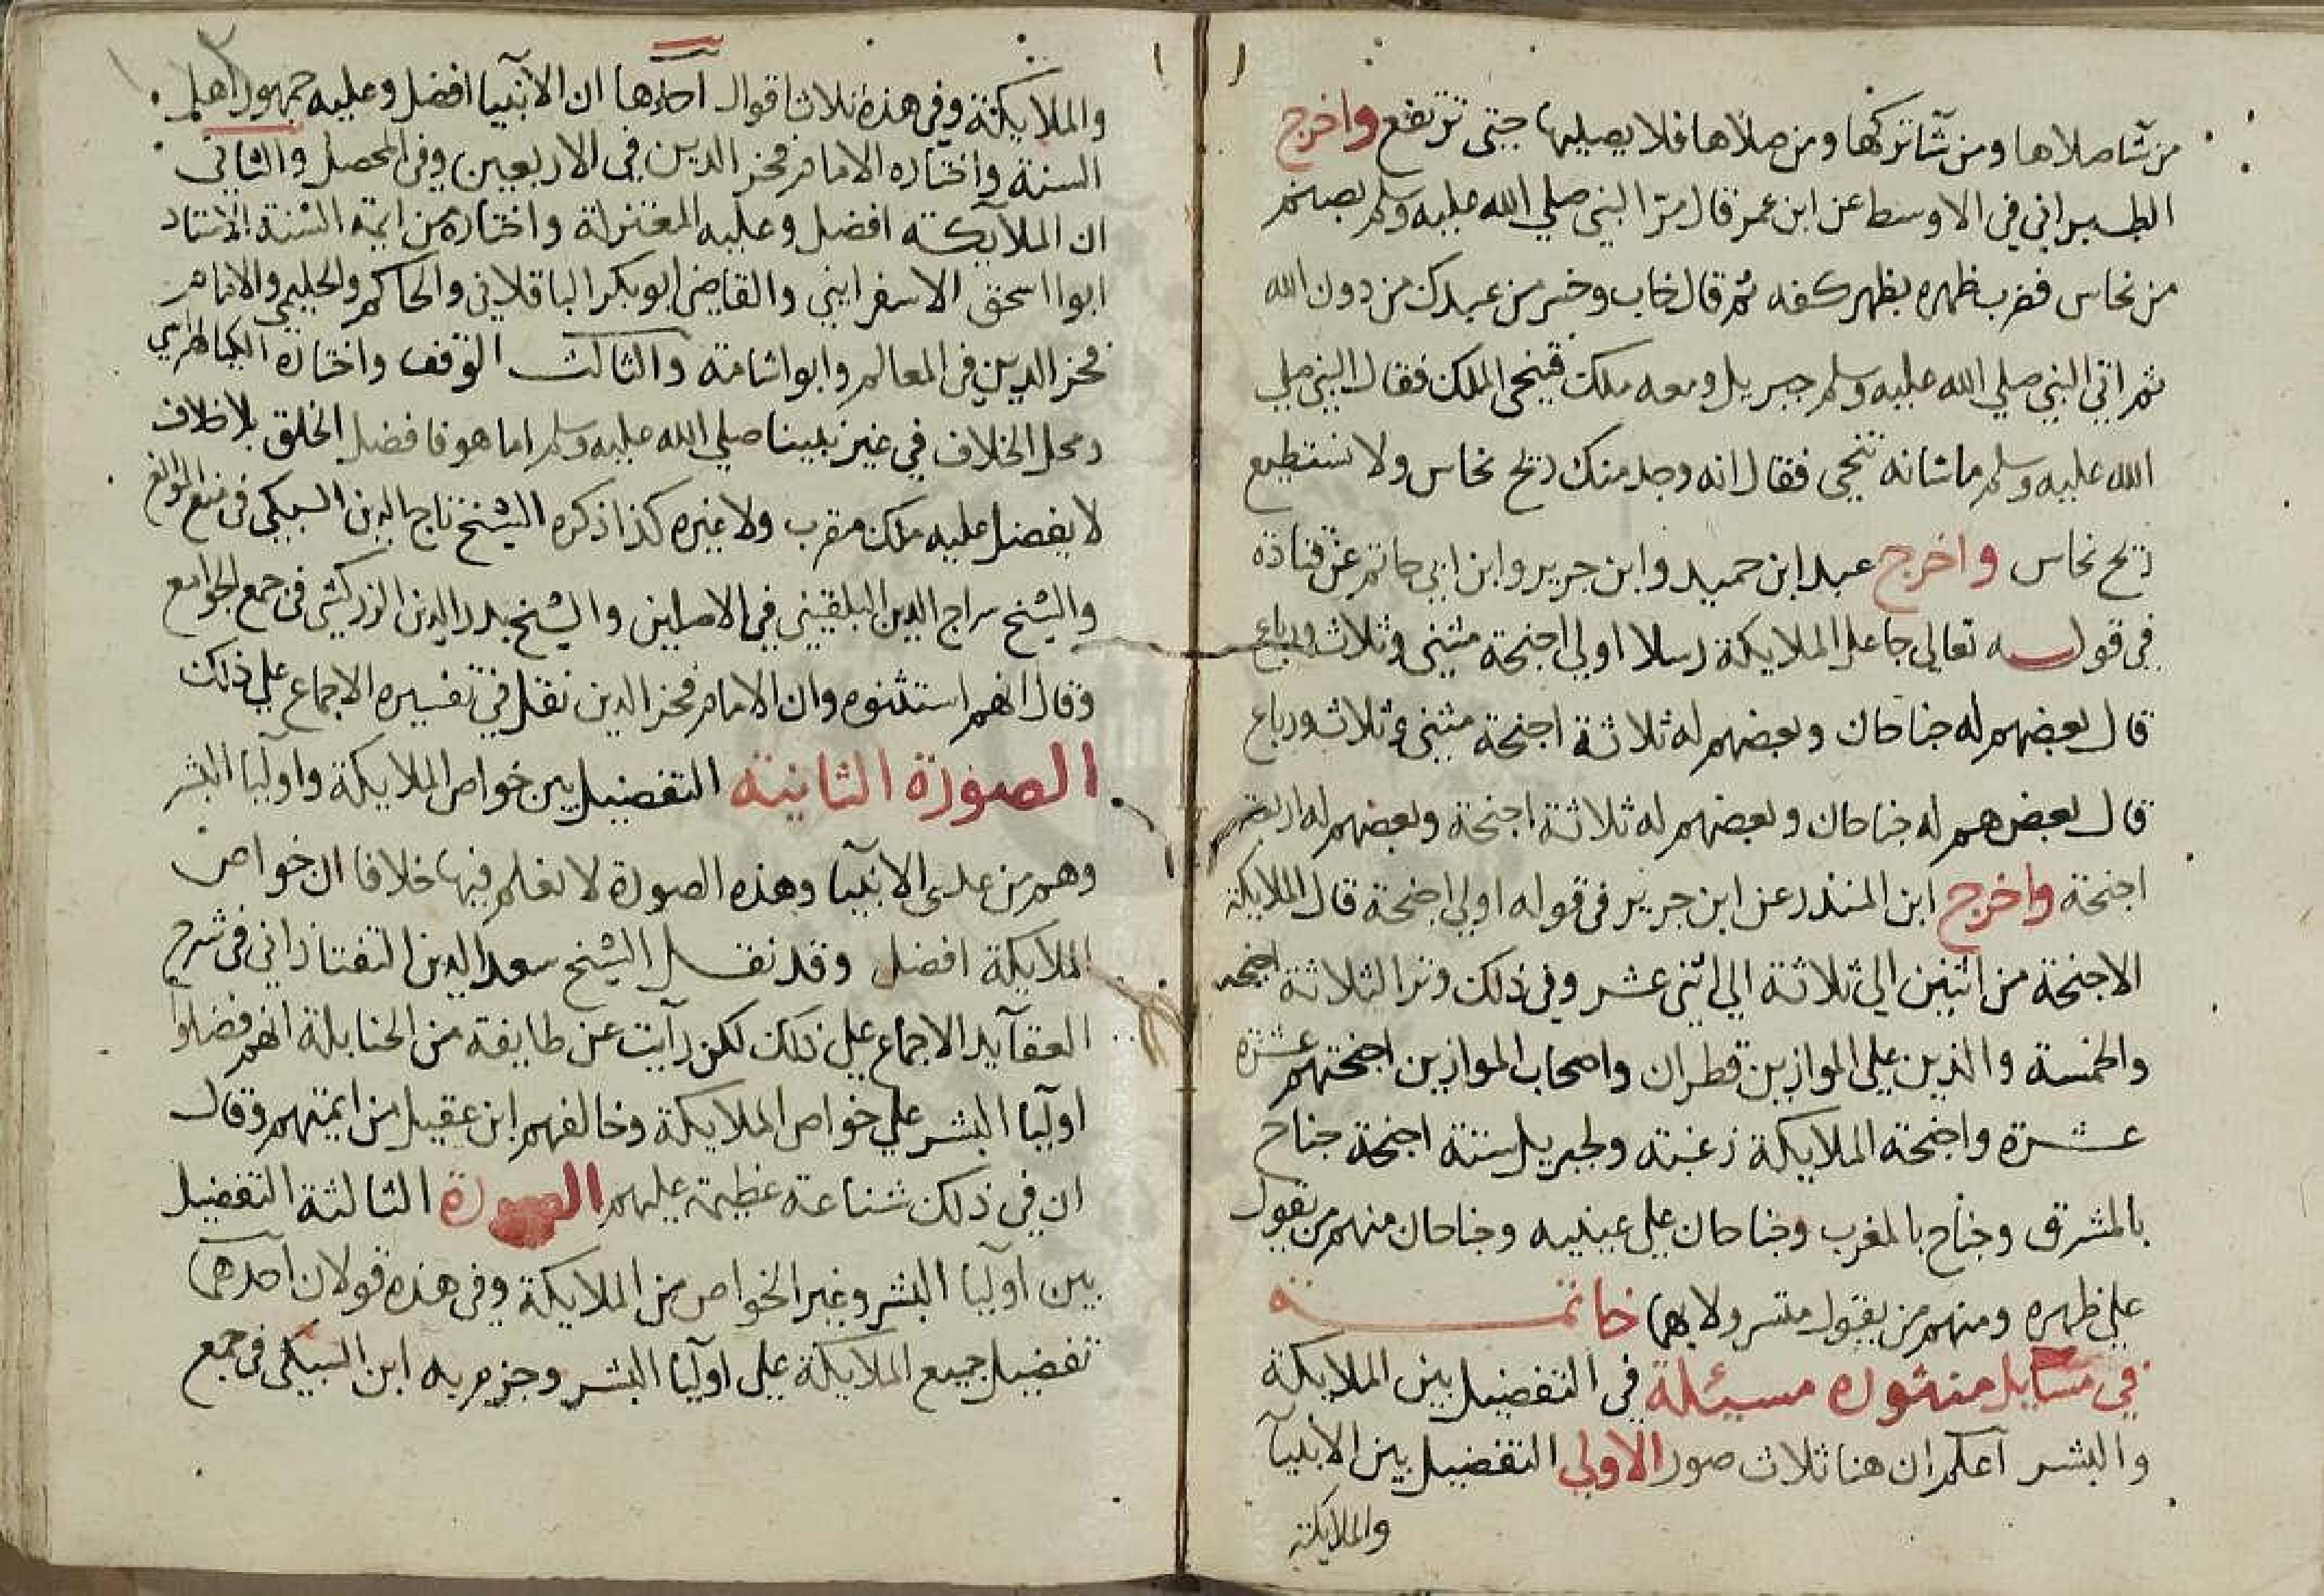 من شا صلاها ومن شا تركها ومن صلاها فلا يصليها حتى ترتفع واخرج
الطبراني في الاوسط عن ابن عمر قال مر النبي صلي الله عليه وسلم بصنم
من نحاس فضرب ظهره بظهر كفه ثم قال خاب وخسر من عبدك من دون الله
ثم اتي النبي صلي الله عليه وسلم جبريل ومعه ملك فتنحى الملك فقال النبي صلي
الله عليه وسلم ما شانه تنحى فقال انه وجد منك ريح نحاس ولا نستطيع
ريح نحاس واخرج عبد ابن حميد وابن جرير وابن ابي حاتم عن قتادة
في قوله تعالي جاعل الملايكة رسلا اولي اجنحة مثنى وثلاث ورباع
قال بعضهم له جناحان وبعضهم له ثلاثة اجنحة مثنى وثلاث ورباع
قال بعضهم له جناحان وبعضهم له ثلاثة اجنحة وبعضهم له اربعة
اجنحة واخرج ابن المنذر عن ابن جرير في قوله اولي اجنحة قال الملايكة
الاجنحة من اثنين الي ثلاثة الي اثنى عشر وفي ذلك وتر الثلاثة اجنحه
والخمسة والذين علي الموازين قطران واصحاب الموازين اجنحتهم عشرة
عشرة واجنحة الملايكة زغبة ولجبريل ستة اجنحة جناح
بالمشرق وجناح بالمغرب وجناحان علي عينيه وجناحان منهم من يقول
علي ظهره ومنهم من يقول متسرولا بهما خاتمة
في مسايل منثوره مسيئلة في التفضيل بين الملايكة
والبشر اعلم ان هنا ثلاث صور الاولي التفضيل بين الانبيآ
والملايكة
والملايكة وفي هذه ثلاث اقوال احدها ان الانبيا افضل وعليه جمهور اهل
السنة واختاره الامام فخر الدين في الاربعين وفي المحصل والثاني
ان الملايكة افضل وعليه المعتزلة واختاره من ايمة السنة الاستاد
ابوا اسحق الاسفرايني والقاضي ابو بكر الباقلاني والحاكم والحليمي والامام
فخر الدين في المعالم وابو اشامة والثالث الوقف واختاره الكيا الهراسي
ومحل الخلاف في غير نبينا صلي الله عليه وسلم اما هو فافضل الخلق بلا خلاف
لا يفضل عليه ملك مقرب ولا غيره كذا ذكره الشيخ تاج الدين السبكي في منع الموانع
والشيخ سراج الدين البلقيني في الاصلين والشيخ بدر الدين الزركشي في جمع الجوامع
وقال انهم استثنوه وان الامام فخر الدين نقل في تفسيره الاجماع علي ذلك
الصورة الثانية التفضيل بين خواص الملايكة واوليا البشر
وهم من عدى الانبيا وهذه الصورة لا نعلم فيها خلافا ان خواص
الملايكة افضل وقد نقل الشيخ سعد الدين التفتازاني في شرح
العقايد الاجماع علي ذلك لكن رايت عن طايفة من الحنابلة انهم فضلوا
اوليا البشر علي خواص الملايكة وخالفهم ابن عقيل من ايمتهم وقال
ان في ذلك شناعة عظيمة عليهم الصورة الثالثة التفضيل
بين اوليا البشر وغير الخواص من الملايكة وفي هذه قولان احدهما
تفضيل جميع الملايكة علي اوليا البشر وجزم به ابن السبكي في جمع